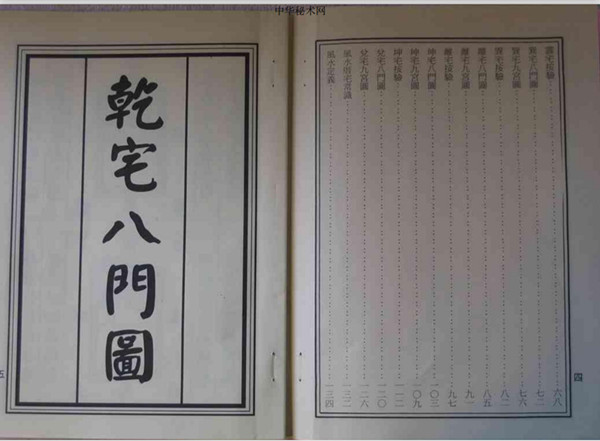 中华秘术网
震宅按驗⋯⋯六八
巽宅八門圖⋯⋯七二
巽宅九宮圖⋯⋯七六
巽宅按驗⋯⋯八二
離宅八門圖⋯⋯八五
離宅九宮圖⋯⋯九一
離宅按驗⋯⋯九七
坤宅八門圖⋯⋯一〇三
坤宅九宮圖⋯⋯一〇九
坤宅按驗⋯⋯一一二
兌宅八門圖⋯⋯一二〇
兌宅九宮圖⋯⋯一二六
風水陽宅常識⋯⋯一三二
風水定義⋯⋯一三四
四
乾宅八門圖
五